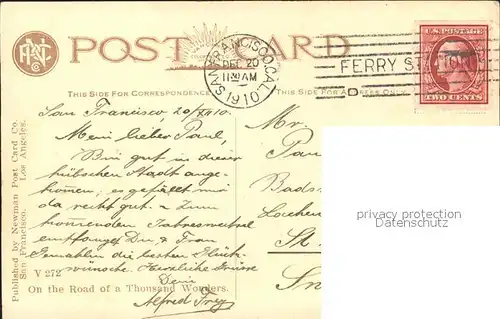 POST CARD
SAN FRANCISCO, CAL.
DEC 20
11 30 AM
1910
FERRY STATION
D
U.S. POSTAGE
TWO CENTS
THIS SIDE FOR CORRESPONDENCE
THIS SIDE FOR ADDRESS ONLY
San Francisco 20/XII 10
Mein lieber Paul,
Bin gut in dieser
hübschen Stadt ange-
kommen; es gefällt mir
da recht gut. - Zum
kommenden Jahreswechsel
empfanget Du & Frau
Gemahlin die besten Glück-
wünsche. Herzliche Grüsse
Dein
Alfred Frey
Mr.
Pau
Bads
St.
privacy protection
Datenschutz
Published by Newman Post Card Co.
San Francisco. Los Angeles.
V 272
On the Road of a Thousand Wonders.